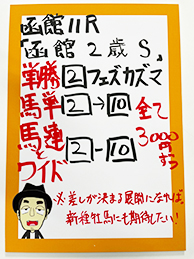 函館11R
「函館2歳S」
単勝 2 フェズカズマ
馬単 2→10 全て
馬連 2-10 3000円ずつ
と
ワイド
※差しが決まる展開になれば、
新種牡馬にも期待したい!